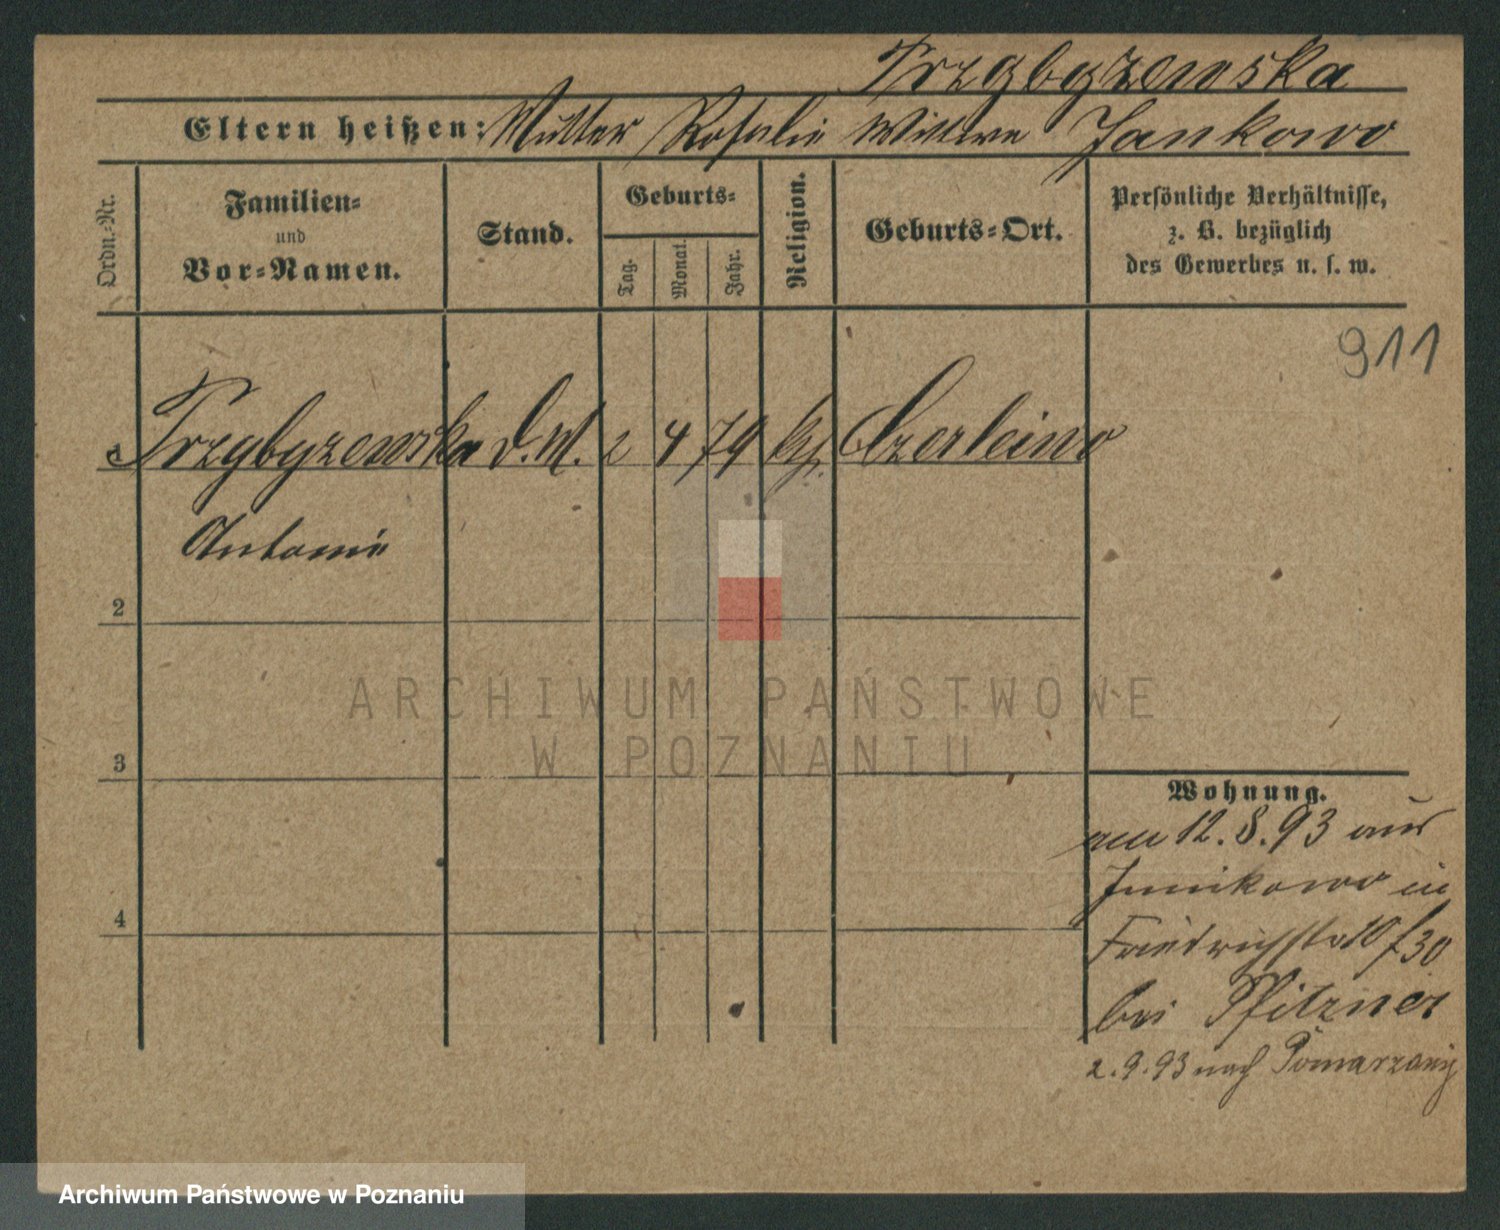 Trzybyzewska
Eltern heißen: Mutter Rosalie Wittwe Jankowo
Ordn.-Nr.
Familien-
und
Vor-Namen.
Stand.
Geburts-
Tag.
Monat.
Jahr.
Religion.
Geburts-Ort.
Persönliche Verhältnisse,
z. B. bezüglich
des Gewerbes u. s. w.
911
1 Trzybyzewska D. M. 2 4 79 kth. Czerleino
Antonie
2
3
4
ARCHIWUM PAŃSTWOWE
W POZNANIU
Wohnung.
am 12.8.93 aus
Junikowo in
Friedrichstr 10 f 30
bei Pfitzner
2.9.93 nach Pomarzany
Archiwum Państwowe w Poznaniu